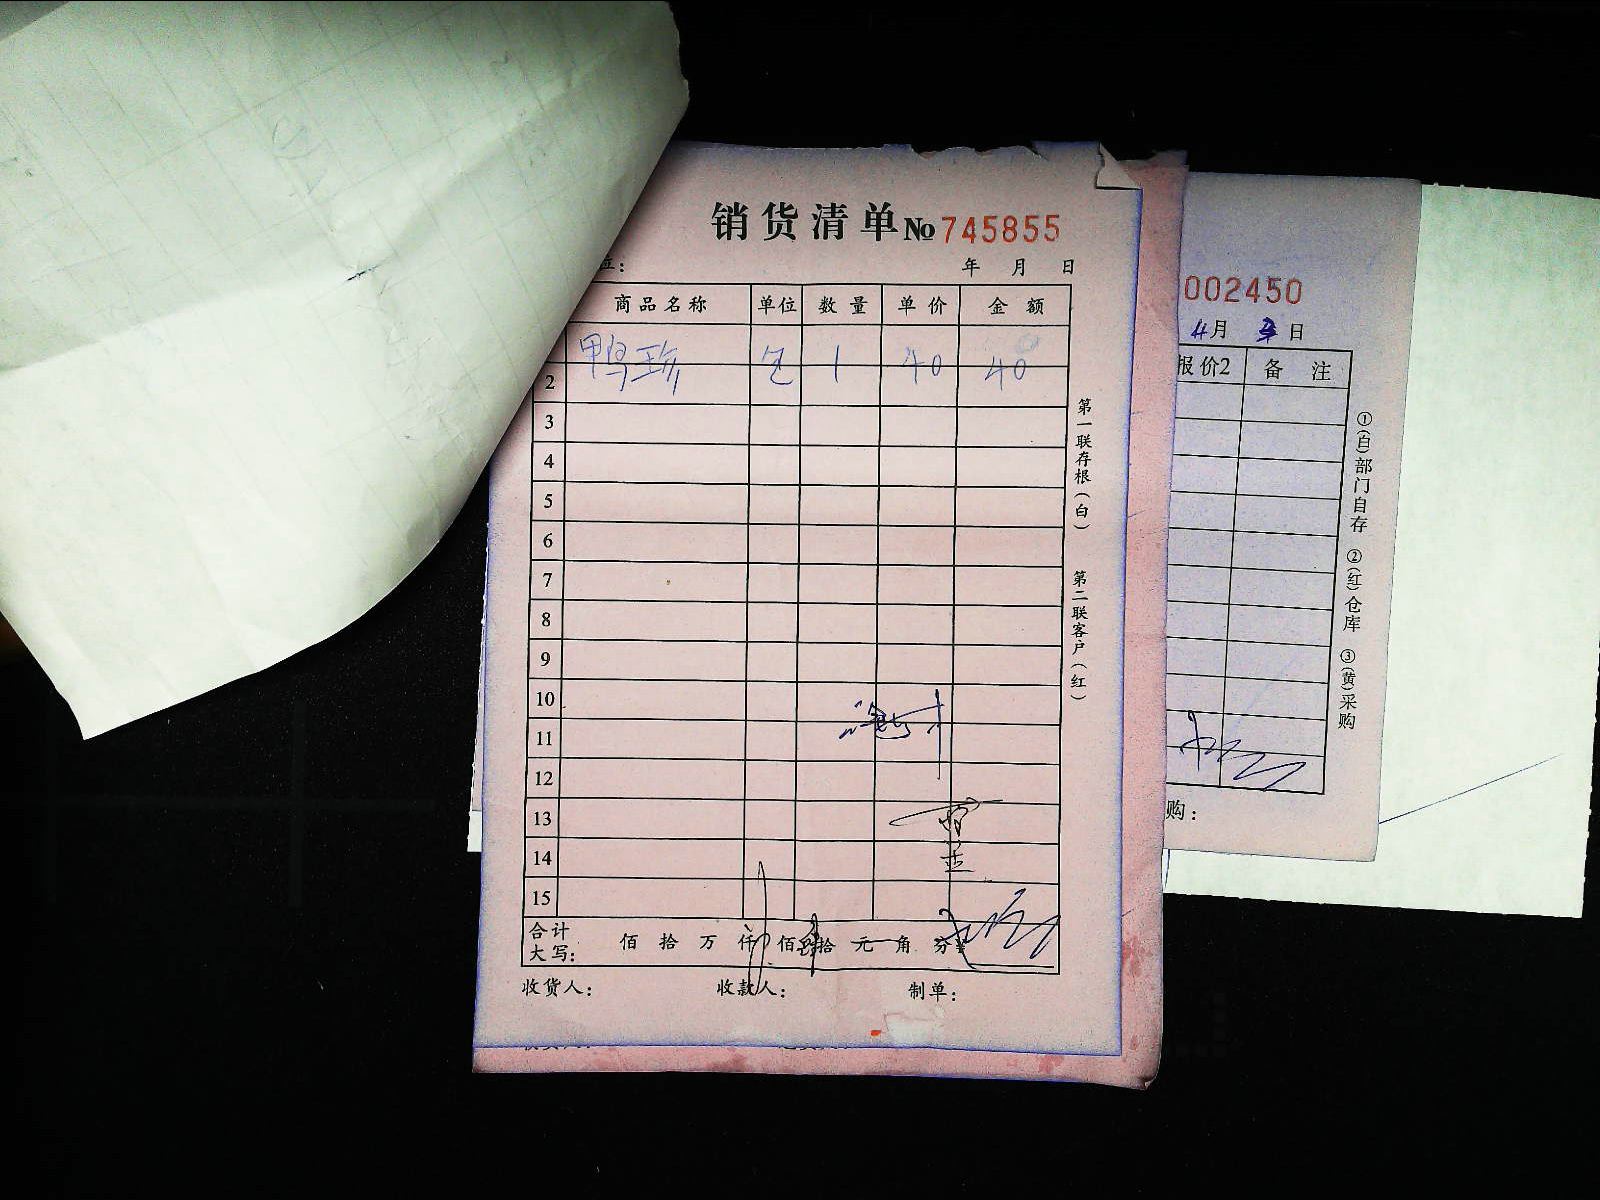 销货清单 № 745855
位： 年 月 日
商品名称 单位 数量 单价 金额
鸭珍 包 1 40 40
2
3
4
5
6
7
8
9
10
11
12
13
14
15
合计大写： 佰 拾 万 仟 佰 拾 元 角 分
收货人： 收款人： 制单：
第一联存根（白） 第二联客户（红）
002450
4月 3日
报价2 备注
购：
①(白)部门自存 ②(红)仓库 ③(黄)采购